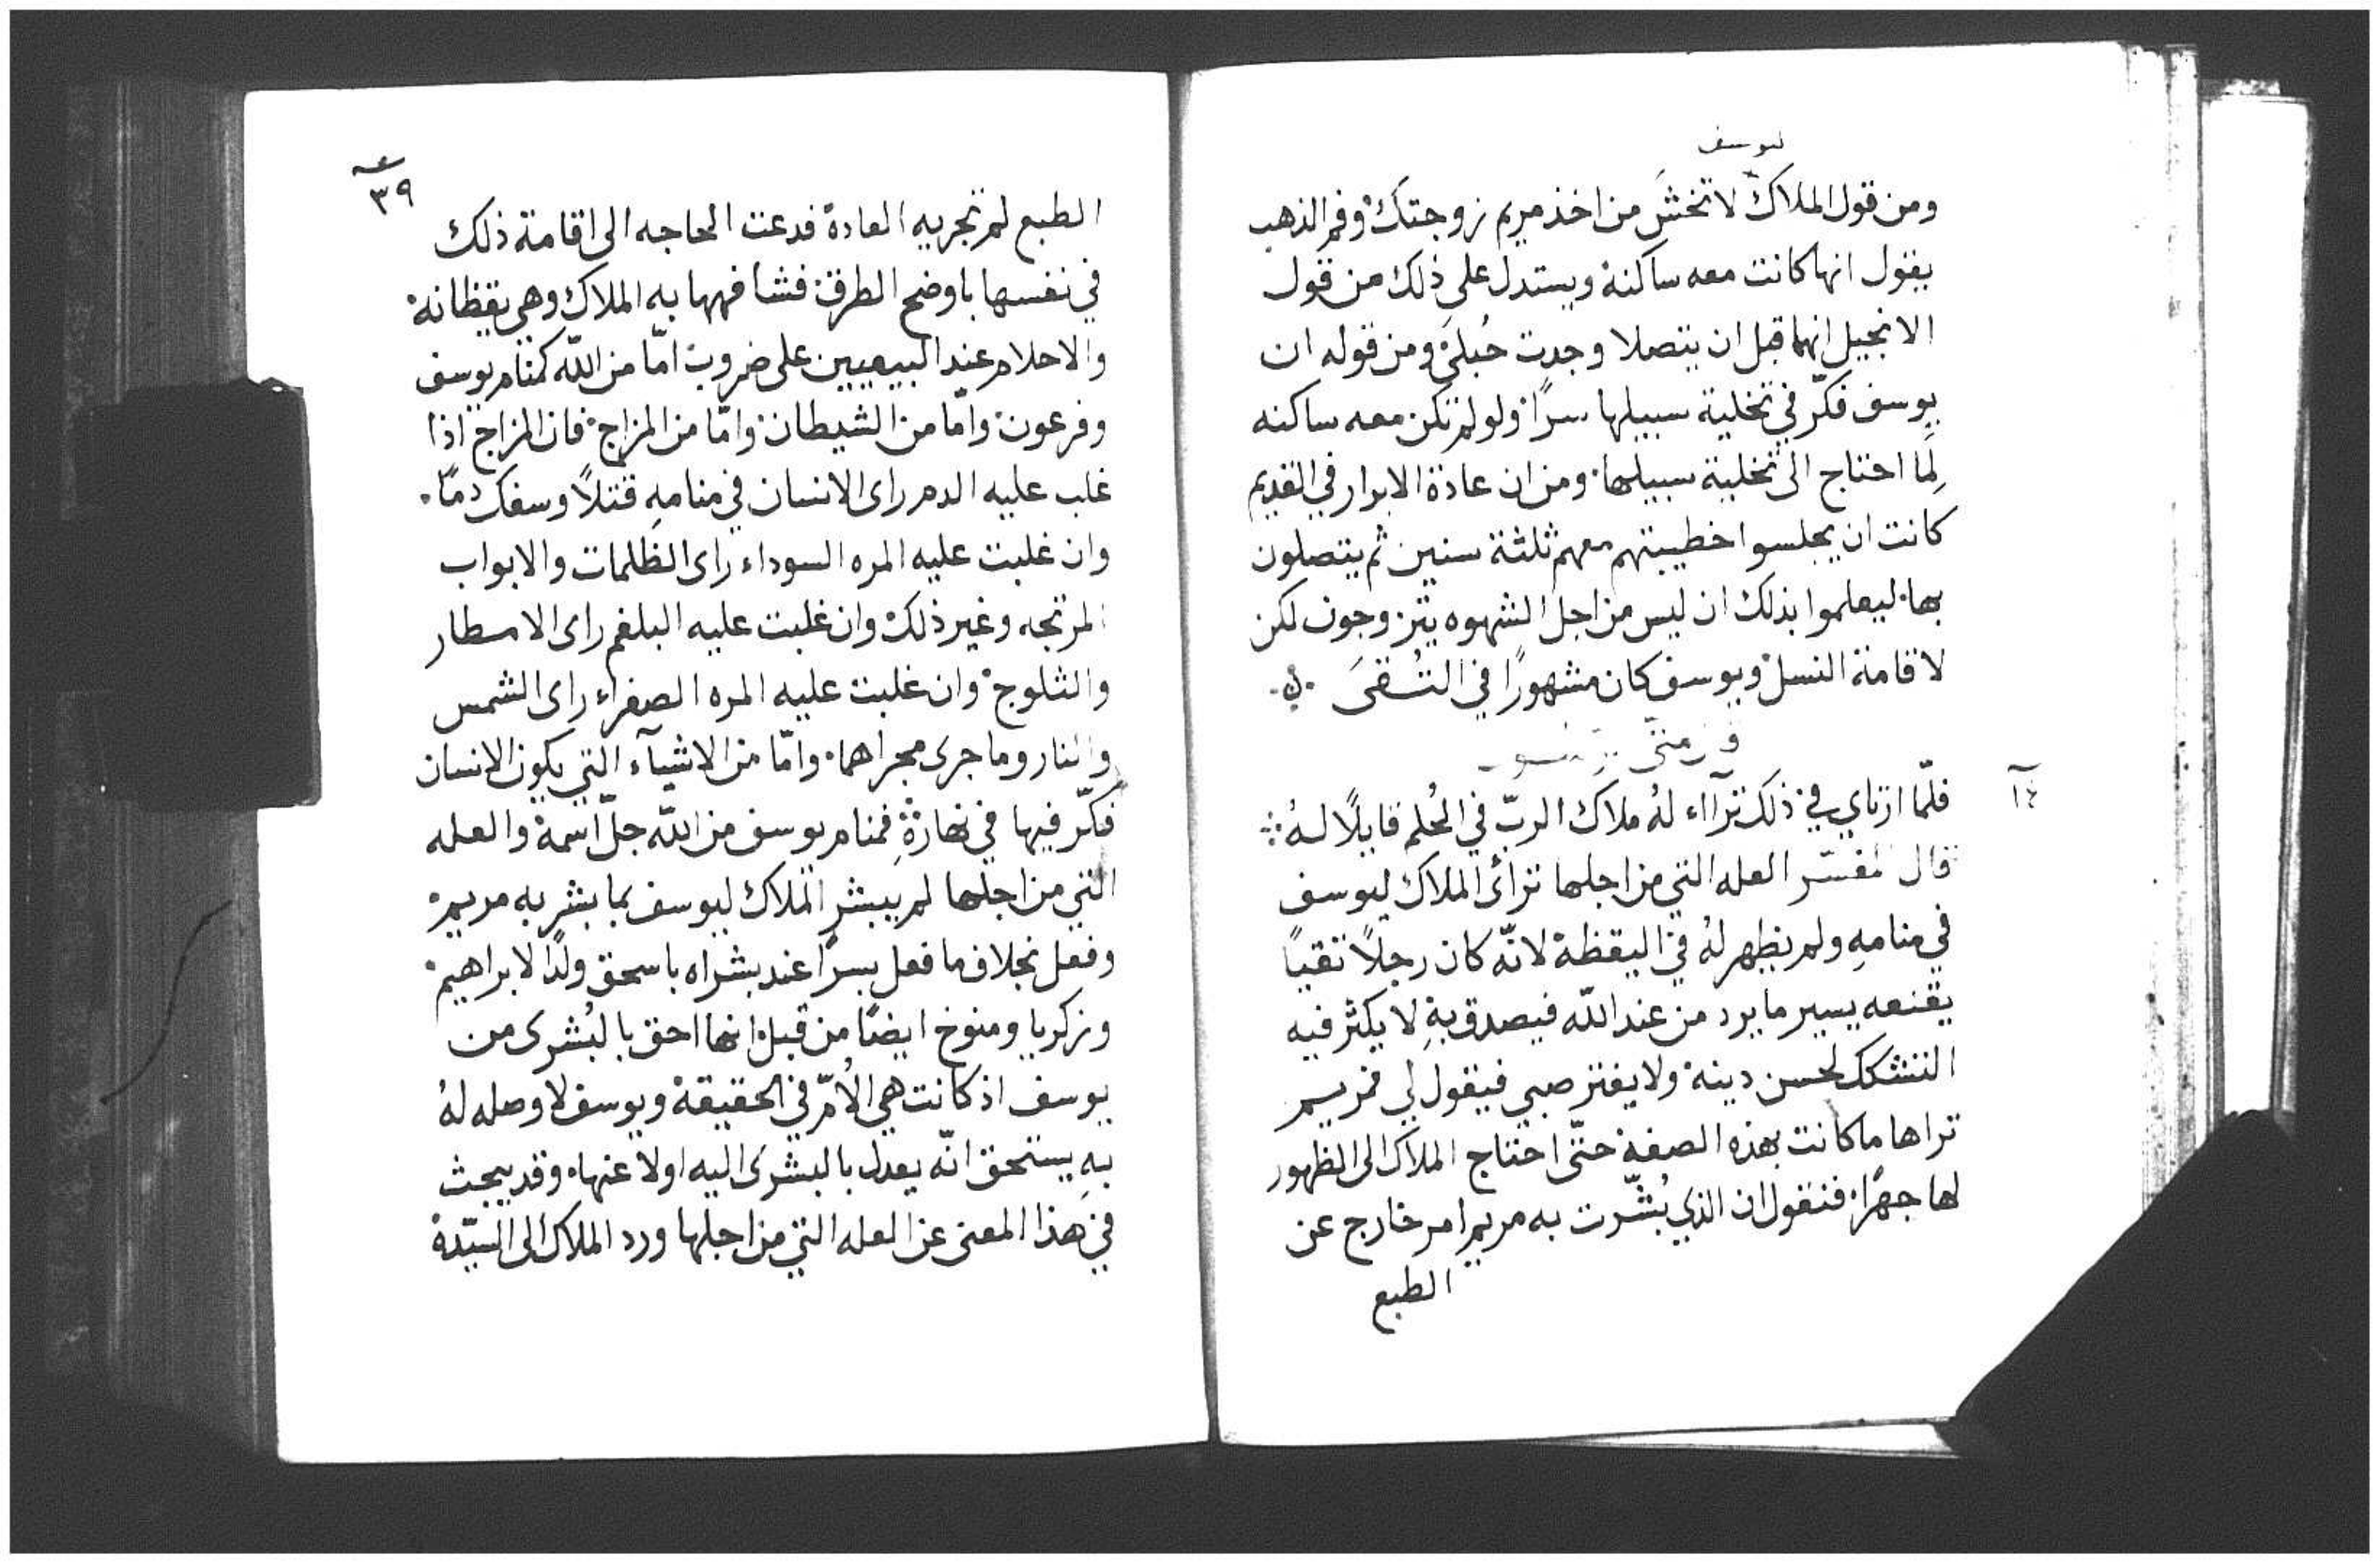 ليوسف
ومن قول الملاك لا تخشَ من اخذ مريم زوجتك وفم الذهب
يقول انها كانت معه ساكنة ويستدل على ذلك من قول
الانجيل انهما قبل ان يتصلا وجدت حُبلَى ومن قوله ان
يوسف فكّر في تخلية سبيلها سرًا ولو لم تكن معه ساكنه
لِمَا احتاج الى تخلية سبيلها ومن ان عادة الابرار في القديم
كانت ان يجلسوا خطيبتهم معهم ثلثة سنين ثم يتصلون
بها ليعلموا بذلك ان ليس من اجل الشهوه يتزوجون لكن
لاقامة النسل ويوسف كان مشهورًا في التُقىَ
١٤
فلمّا ارتاي في ذلك ترآاء لهُ ملاك الربّ في الحُلم قايلًا لهُ
قال المفسّر العله التي من اجلها ترآى الملاك ليوسف
في منامهِ ولم يظهر لهُ في اليقظة لانّه كان رجلًا تقيًا
يقنعه يسير ما يرد من عند الله فيصدق بهِ لا يكثر فيه
التشكك لحسن دينه ولا يفتر صبي فيقول لي فمريم
تراها ما كانت بهذه الصفة حتّى احتاج الملاك الى الظهور
لها جهرًا فنقول ان الذي بُشّرت به مريم امر خارج عن
الطبع
٣٩
الطبع لم تجر به العادة فدعت الحاجه الى اقامة ذلك
في نفسها باوضح الطرق فشافهها به الملاك وهي يقظانة
والاحلام عند البيعيين على ضروب امّا من الله كمنام يوسف
وفرعون وامّا من الشيطان وامّا من المزاج فان المزاج اذا
غلب عليه الدم راى الانسان في منامهِ قتلًا وسفك دمًا
وان غلبت عليه المره السوداء راى الظلمات والابواب
المرتجه وغير ذلك وان غلبت عليه البلغم راى الامطار
والثلوج وان غلبت عليه المره الصفراء راى الشمس
والنار وما جرى مجراهما وامّا من الاشيآء التي يكون الانسان
فكّر فيها في نهارةِ فمنام يوسف من الله جلّ اسمهُ والعله
التي من اجلها لم يبشر الملاك ليوسف بما بشر به مريم
وفعل بخلاف ما فعل بسرّا عند بشراه باسحق ولدًا لابراهيم
وزكريا ومنوخ ايضًا من قبل انها احق بالبُشرى من
يوسف اذ كانت هي الاُمّ في الحقيقة ويوسف لا وصله لهُ
بهِ يستحق انّه يعدل بالبشرى اليه اولا عنها وقد يبحث
في هذا المعنى عن العله التي من اجلها ورد الملاك الى السيّدة